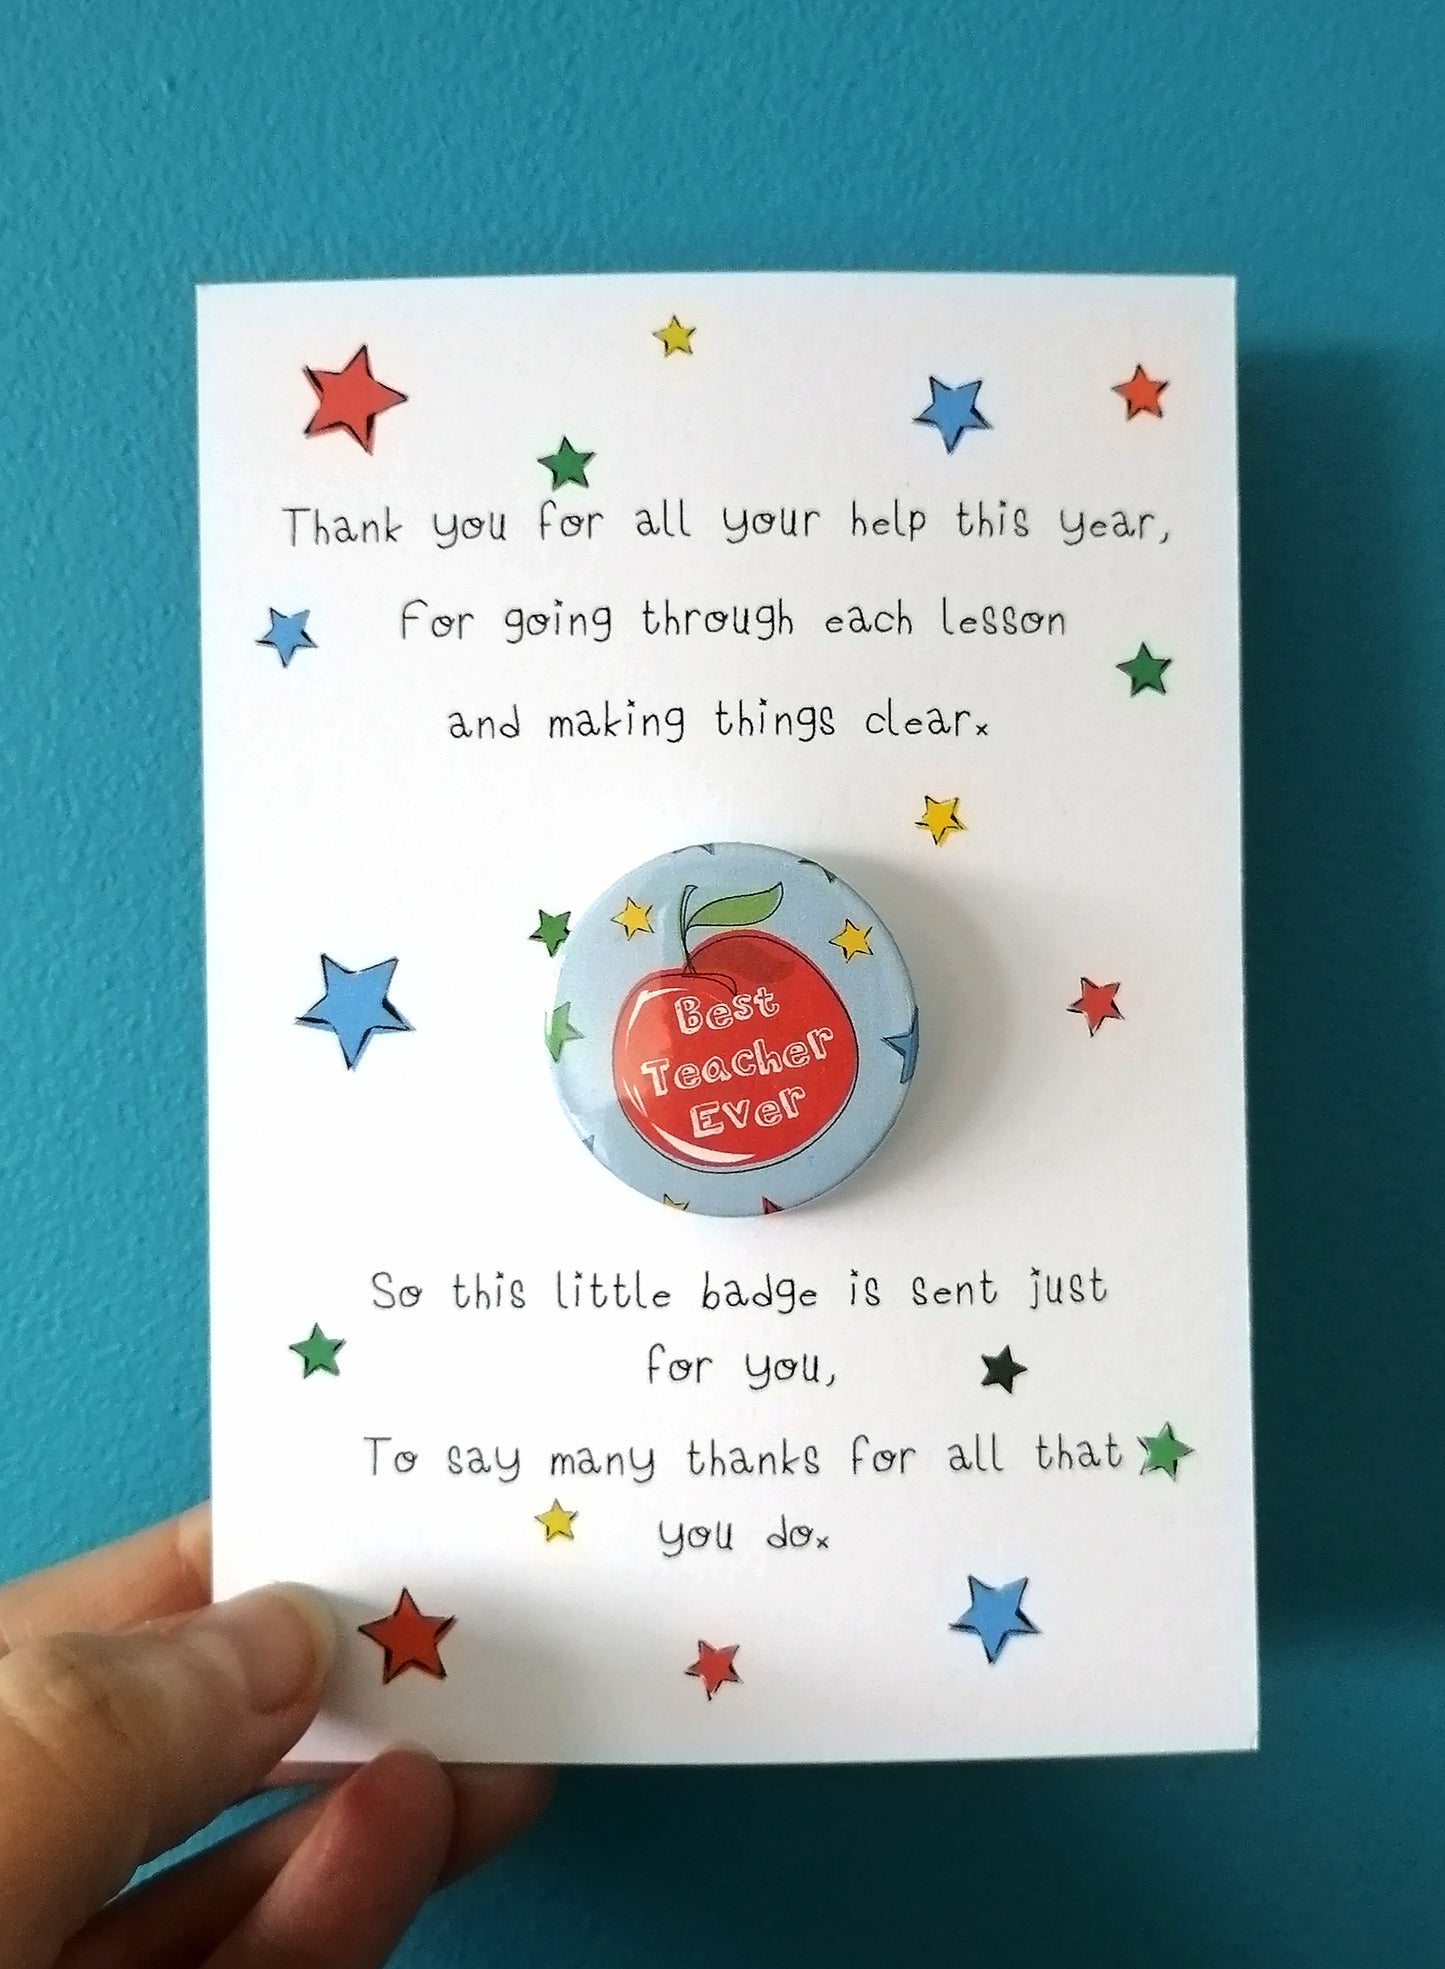 Thank you for all your help this year,
for going through each lesson
and making things clear.
Best
Teacher
Ever
So this little badge is sent just
for you,
To say many thanks for all that
you do.